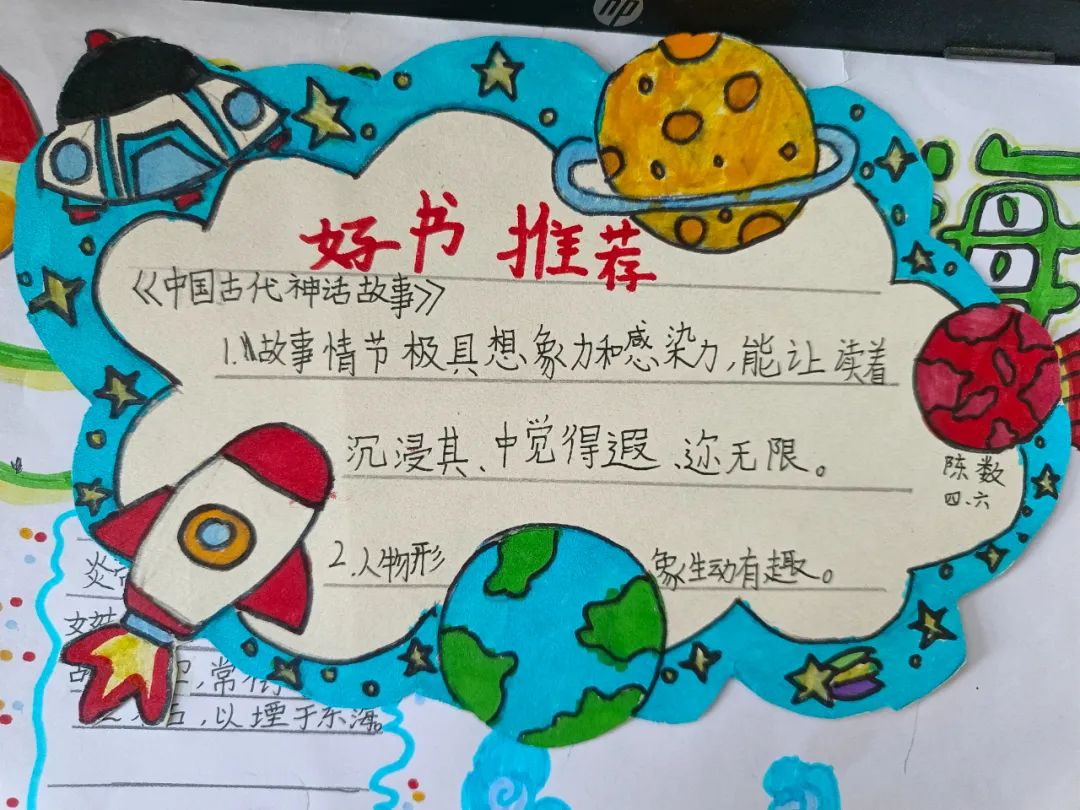 hp
好书推荐
《中国古代神话故事》
1.故事情节极具想象力和感染力,能让读着
沉浸其、中觉得遐、迩无限。
陈数
四、六
2.人物形象生动有趣。
炎
,常衔
石,以堙于东海。